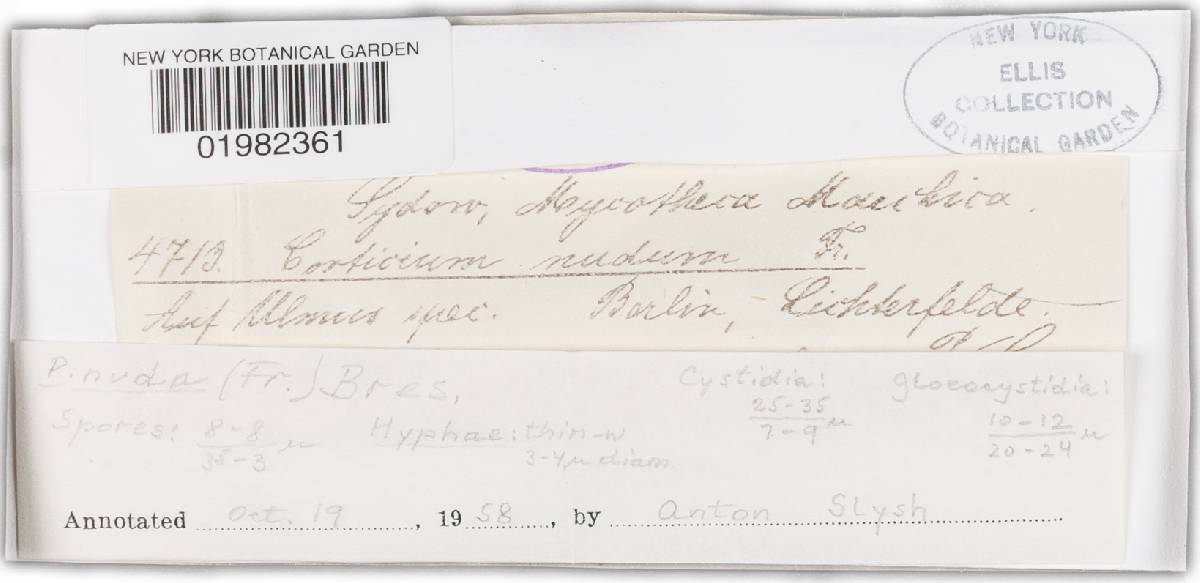 NEW YORK BOTANICAL GARDEN
01982361
NEW YORK
ELLIS
COLLECTION
BOTANICAL GARDEN
Sydow, Mycotheca Marchica.
4713. Corticium nudum Fr.
Auf Ulmus spec. Berlin, Lichterfelde.
P. nuda (Fr.) Bres.
Cystidia:
25-35
7-9 μ
gloeocystidia:
10-12
20-24 μ
Spores: 8-8
35-3 μ
Hyphae: thin-w
3-4μ diam.
Annotated Oct. 19, 1958, by Anton Slysh